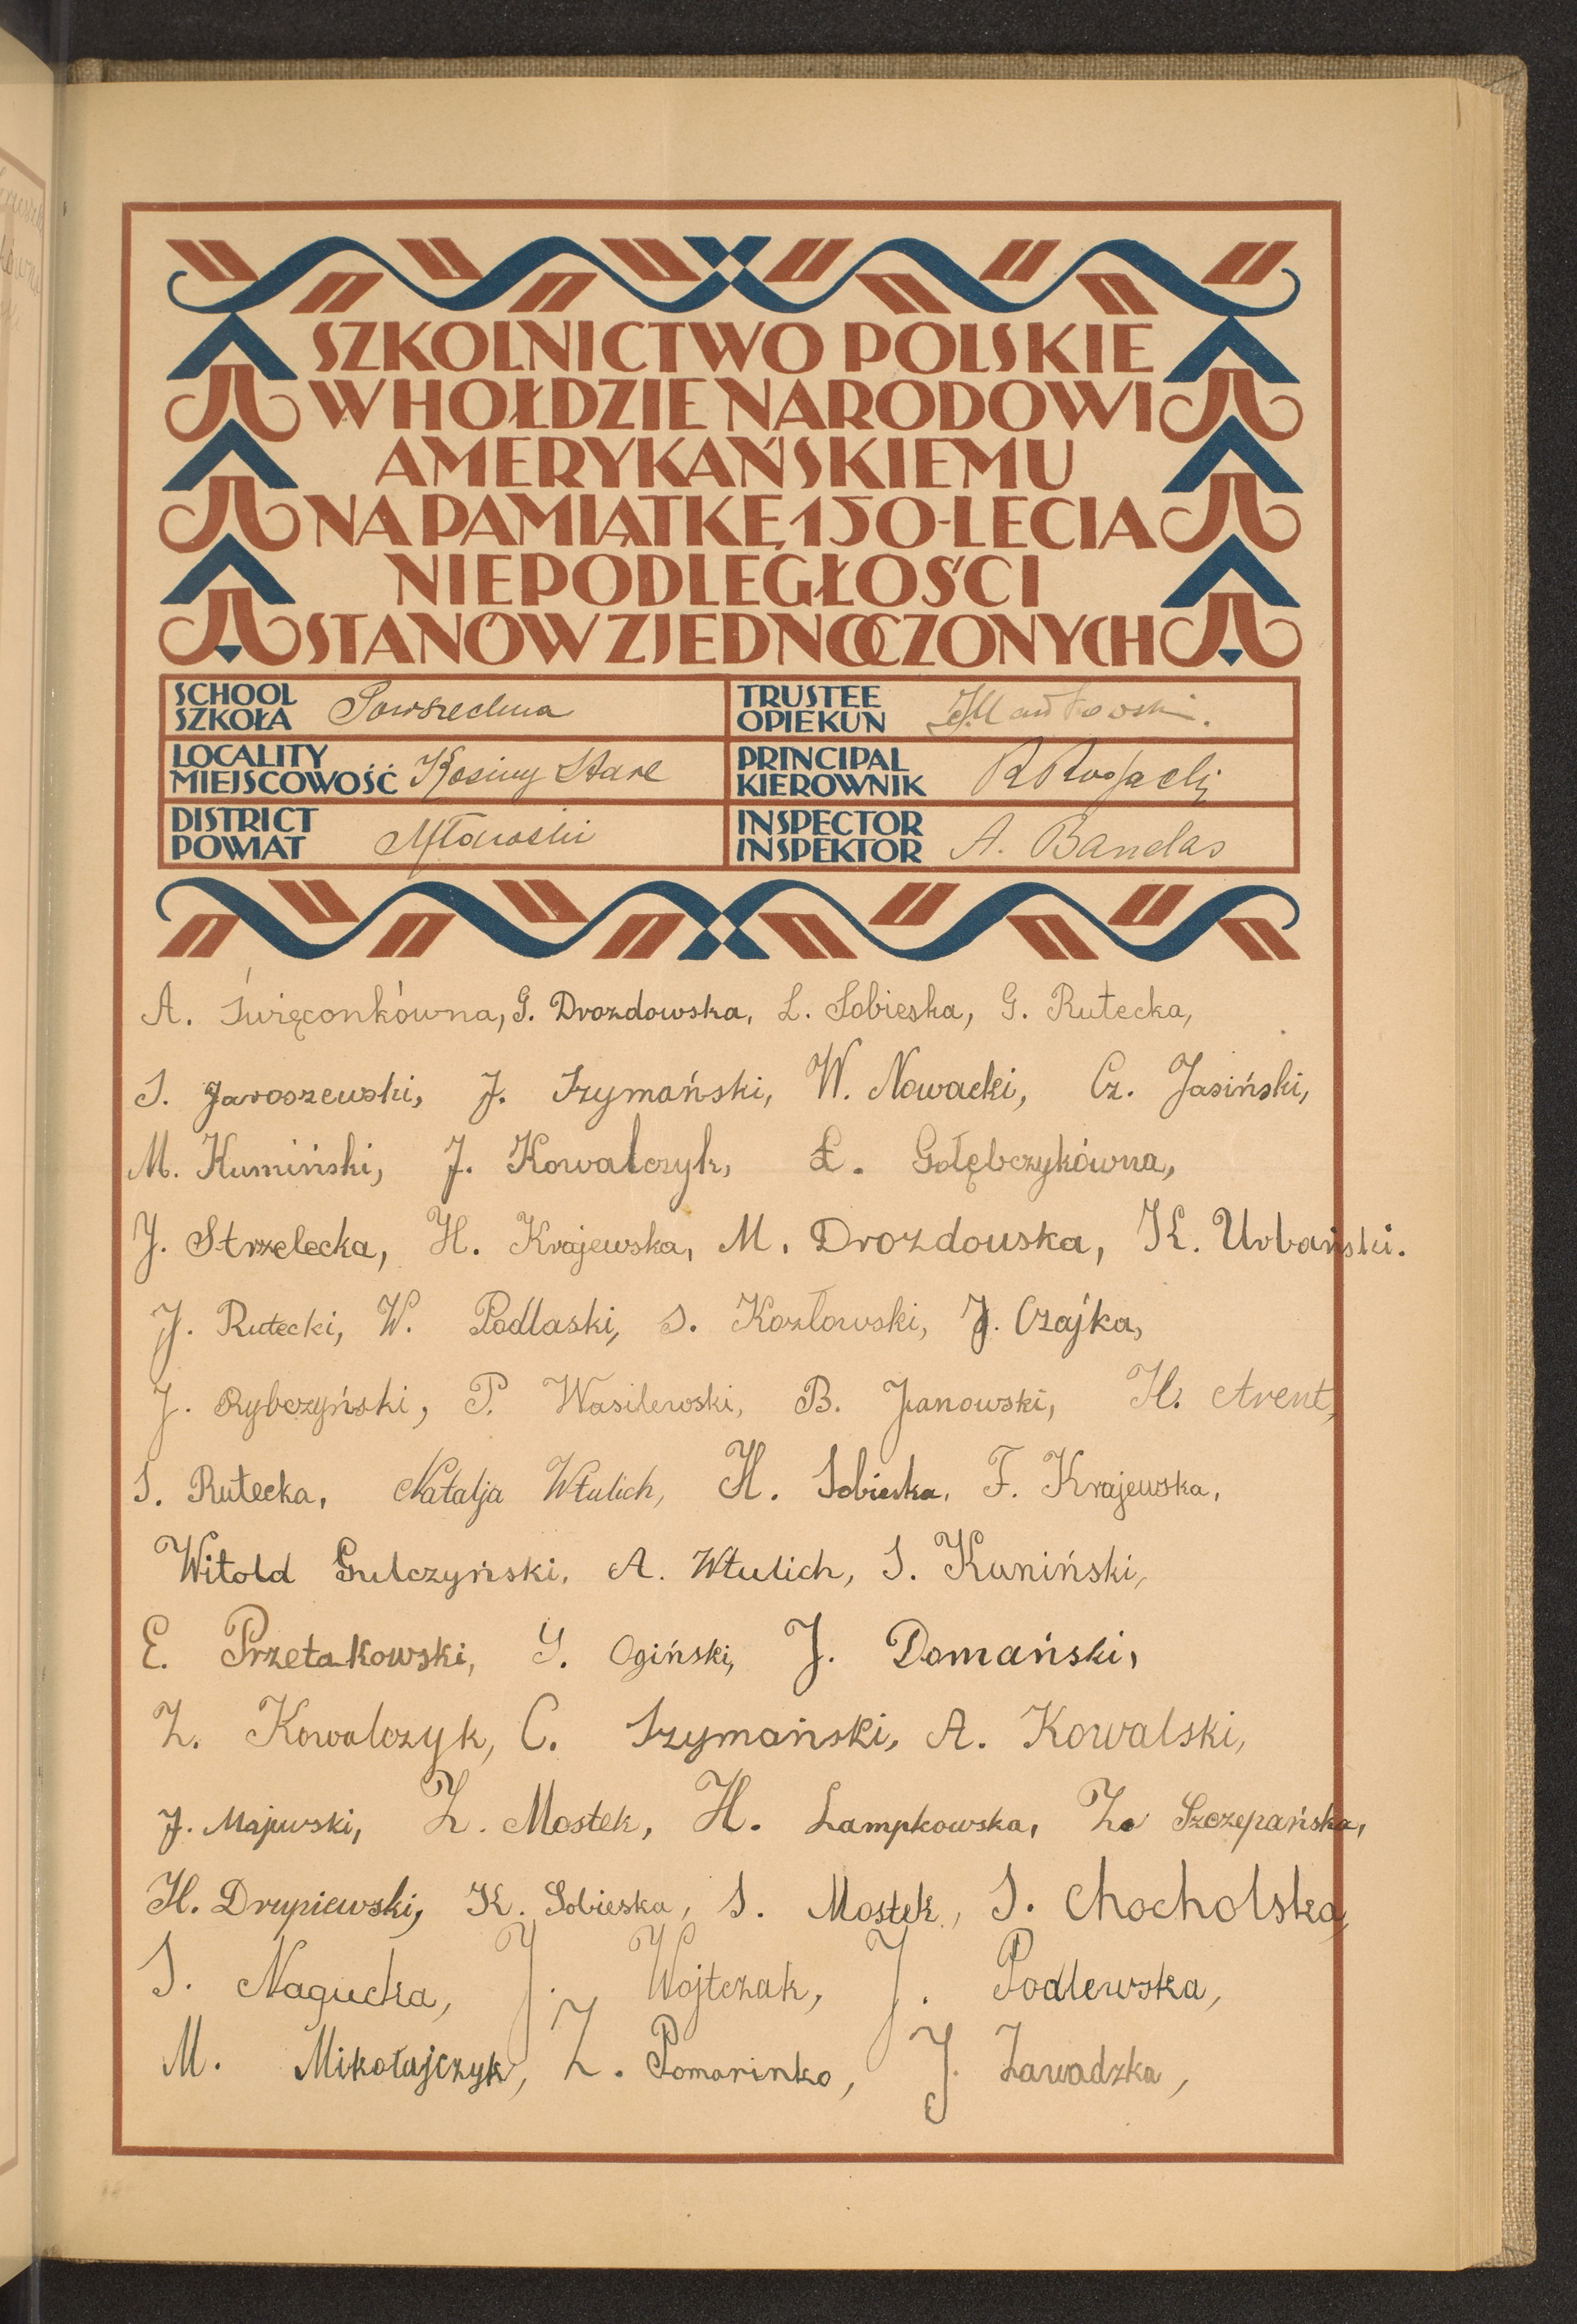 SZKOLNICTWO POLSKIE
W HOŁDZIE NARODOWI
AMERYKAŃSKIEMU
NA PAMIĄTKĘ 150-LECIA
NIEPODLEGŁOŚCI
STANÓW ZJEDNOCZONYCH
SCHOOL
SZKOŁA Powszechna
TRUSTEE
OPIEKUN
LOCALITY
MIEJSCOWOŚĆ Kosiny Stare
PRINCIPAL
KIEROWNIK
DISTRICT
POWIAT Mławski
INSPECTOR
INSPEKTOR A. Bandas
A. Święconkówna, G. Drozdowska, L. Sobieska, G. Rutecka,
S. Jaroszewski, J. Szymański, W. Nowacki, Cz. Jasiński,
M. Kumiński, J. Kowalczyk, Ł. Gołębczykówna,
J. Strzelecka, H. Krajewska, M. Drozdouska, K. Urbański.
J. Rutecki, W. Podlaski, S. Kozłowski, J. Czajka,
J. Rybczyński, P. Wasilewski, B. Janowski, H. Arent,
S. Rutecka, Natalja Wtulich, H. Sobieska, F. Krajewska,
Witold Gulczyński, A. Wtulich, S. Kuniński,
E. Przetakowski, Y. Ogiński, J. Domański,
Z. Kowalczyk, C. Szymański, A. Kowalski,
J. Majewski, Z. Mostek, H. Lampkowska, Z. Szczepańska,
H. Drupiewski, K. Sobieska, S. Mostek, S. Chocholska,
S. Nagucka, J. Wojtczak, J. Podlewska,
M. Mikołajczyk, Z. Pomarinko, J. Zawadzka,